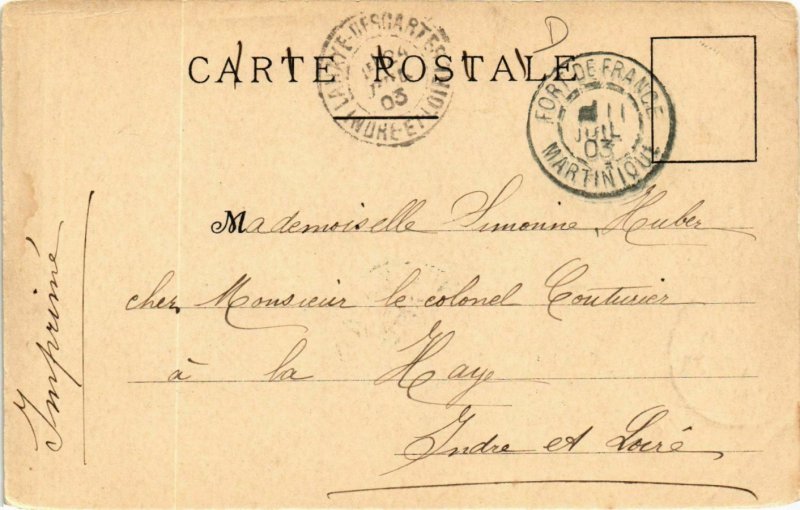 CARTE POSTALE
LA HAYE-DESCARTES
03
INDRE-ET-LOIRE
D
FORT DE FRANCE
11
JUIL
03
MARTINIQUE
Mademoiselle Simonne Huber
chez Monsieur le colonel Couturier
à la Haye
Indre et Loire
Imprimé